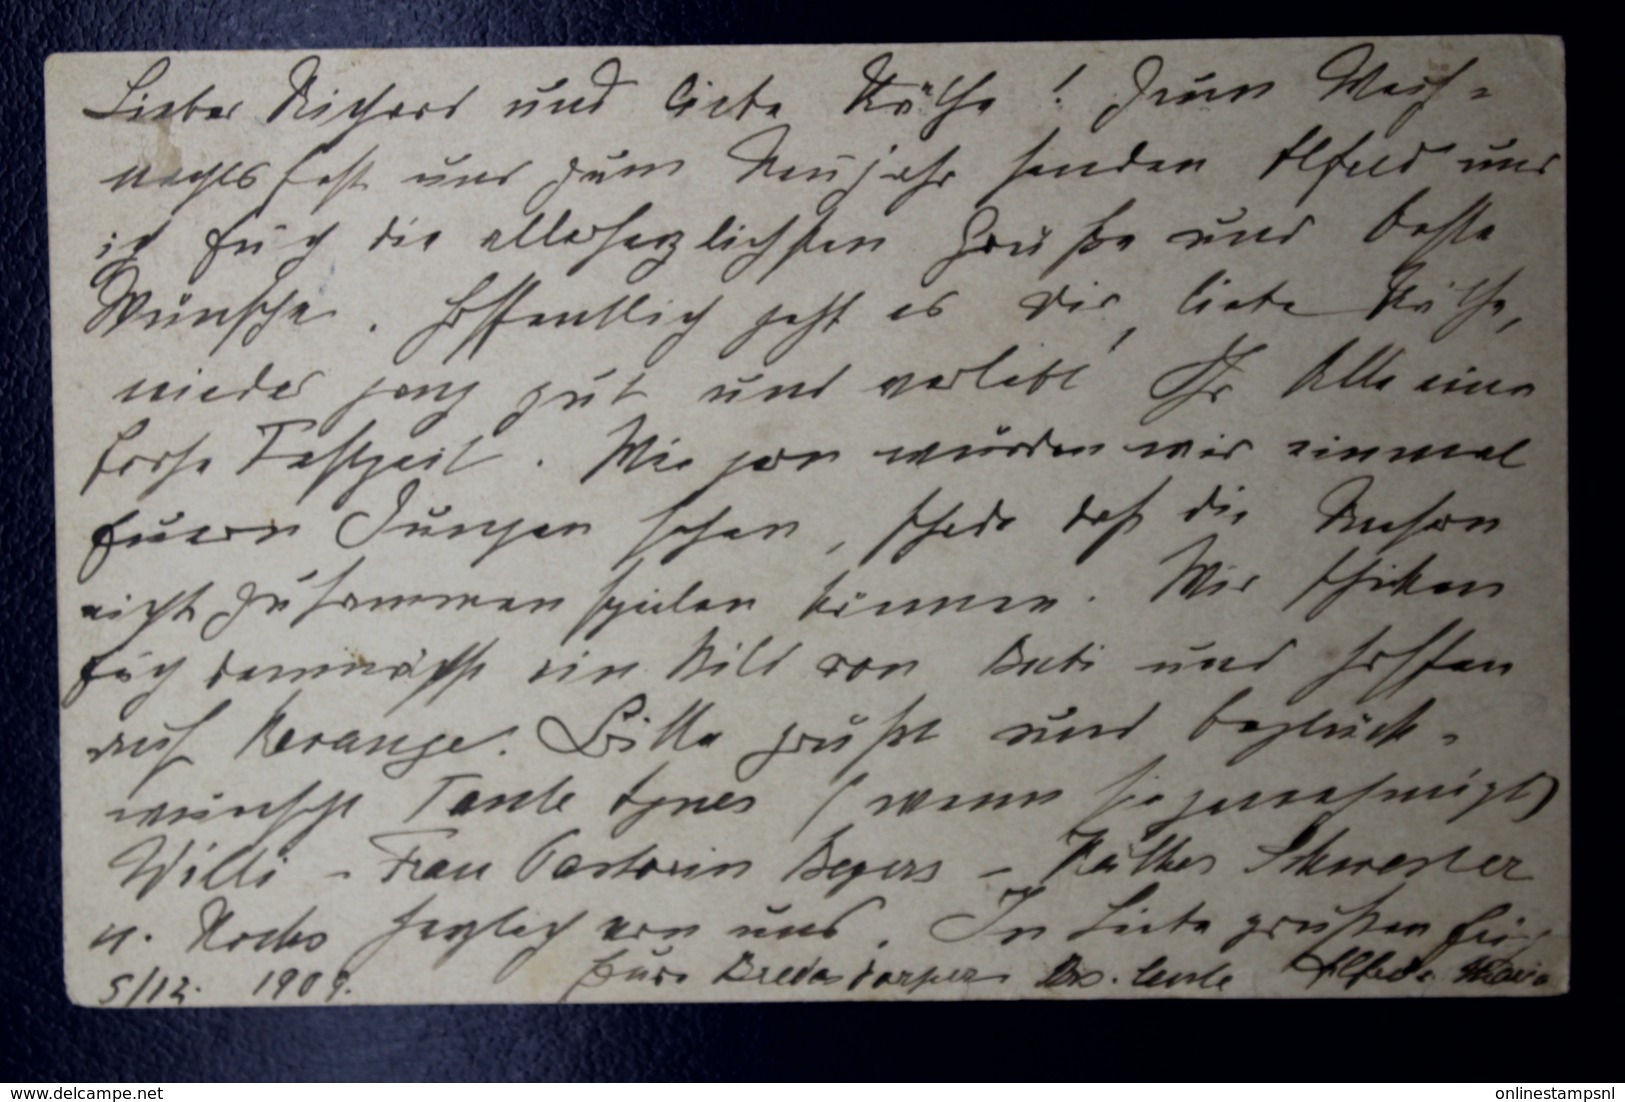 Lieber Richard und liebe Käthe! Zum Weih-
nachtsfest und zum Neujahr senden Alfred und
ich Euch die allerherzlichsten Grüße und beste
Wünsche. Hoffentlich geht es Dir, liebe Käthe,
wieder ganz gut und verlebt Ihr Alle eine
frohe Festzeit. Wie gern würden wir einmal
Euern Jungen sehen, schade daß die
nicht zusammen spielen können. Wir schicken
Euch demnächst ein Bild von Bubi und hoffen
auf Revange. Bitte grüßt und beglück-
wünscht Tante Agnes (wenn sie genehmigt)
Willi - Frau Pastorin Beyers - Käthes Schwester
u. herzlich von uns. In Liebe grüßen Euch
5/12. 1909. Eure Bredasdorper Alfred u. Maria
onlinestamps.nl